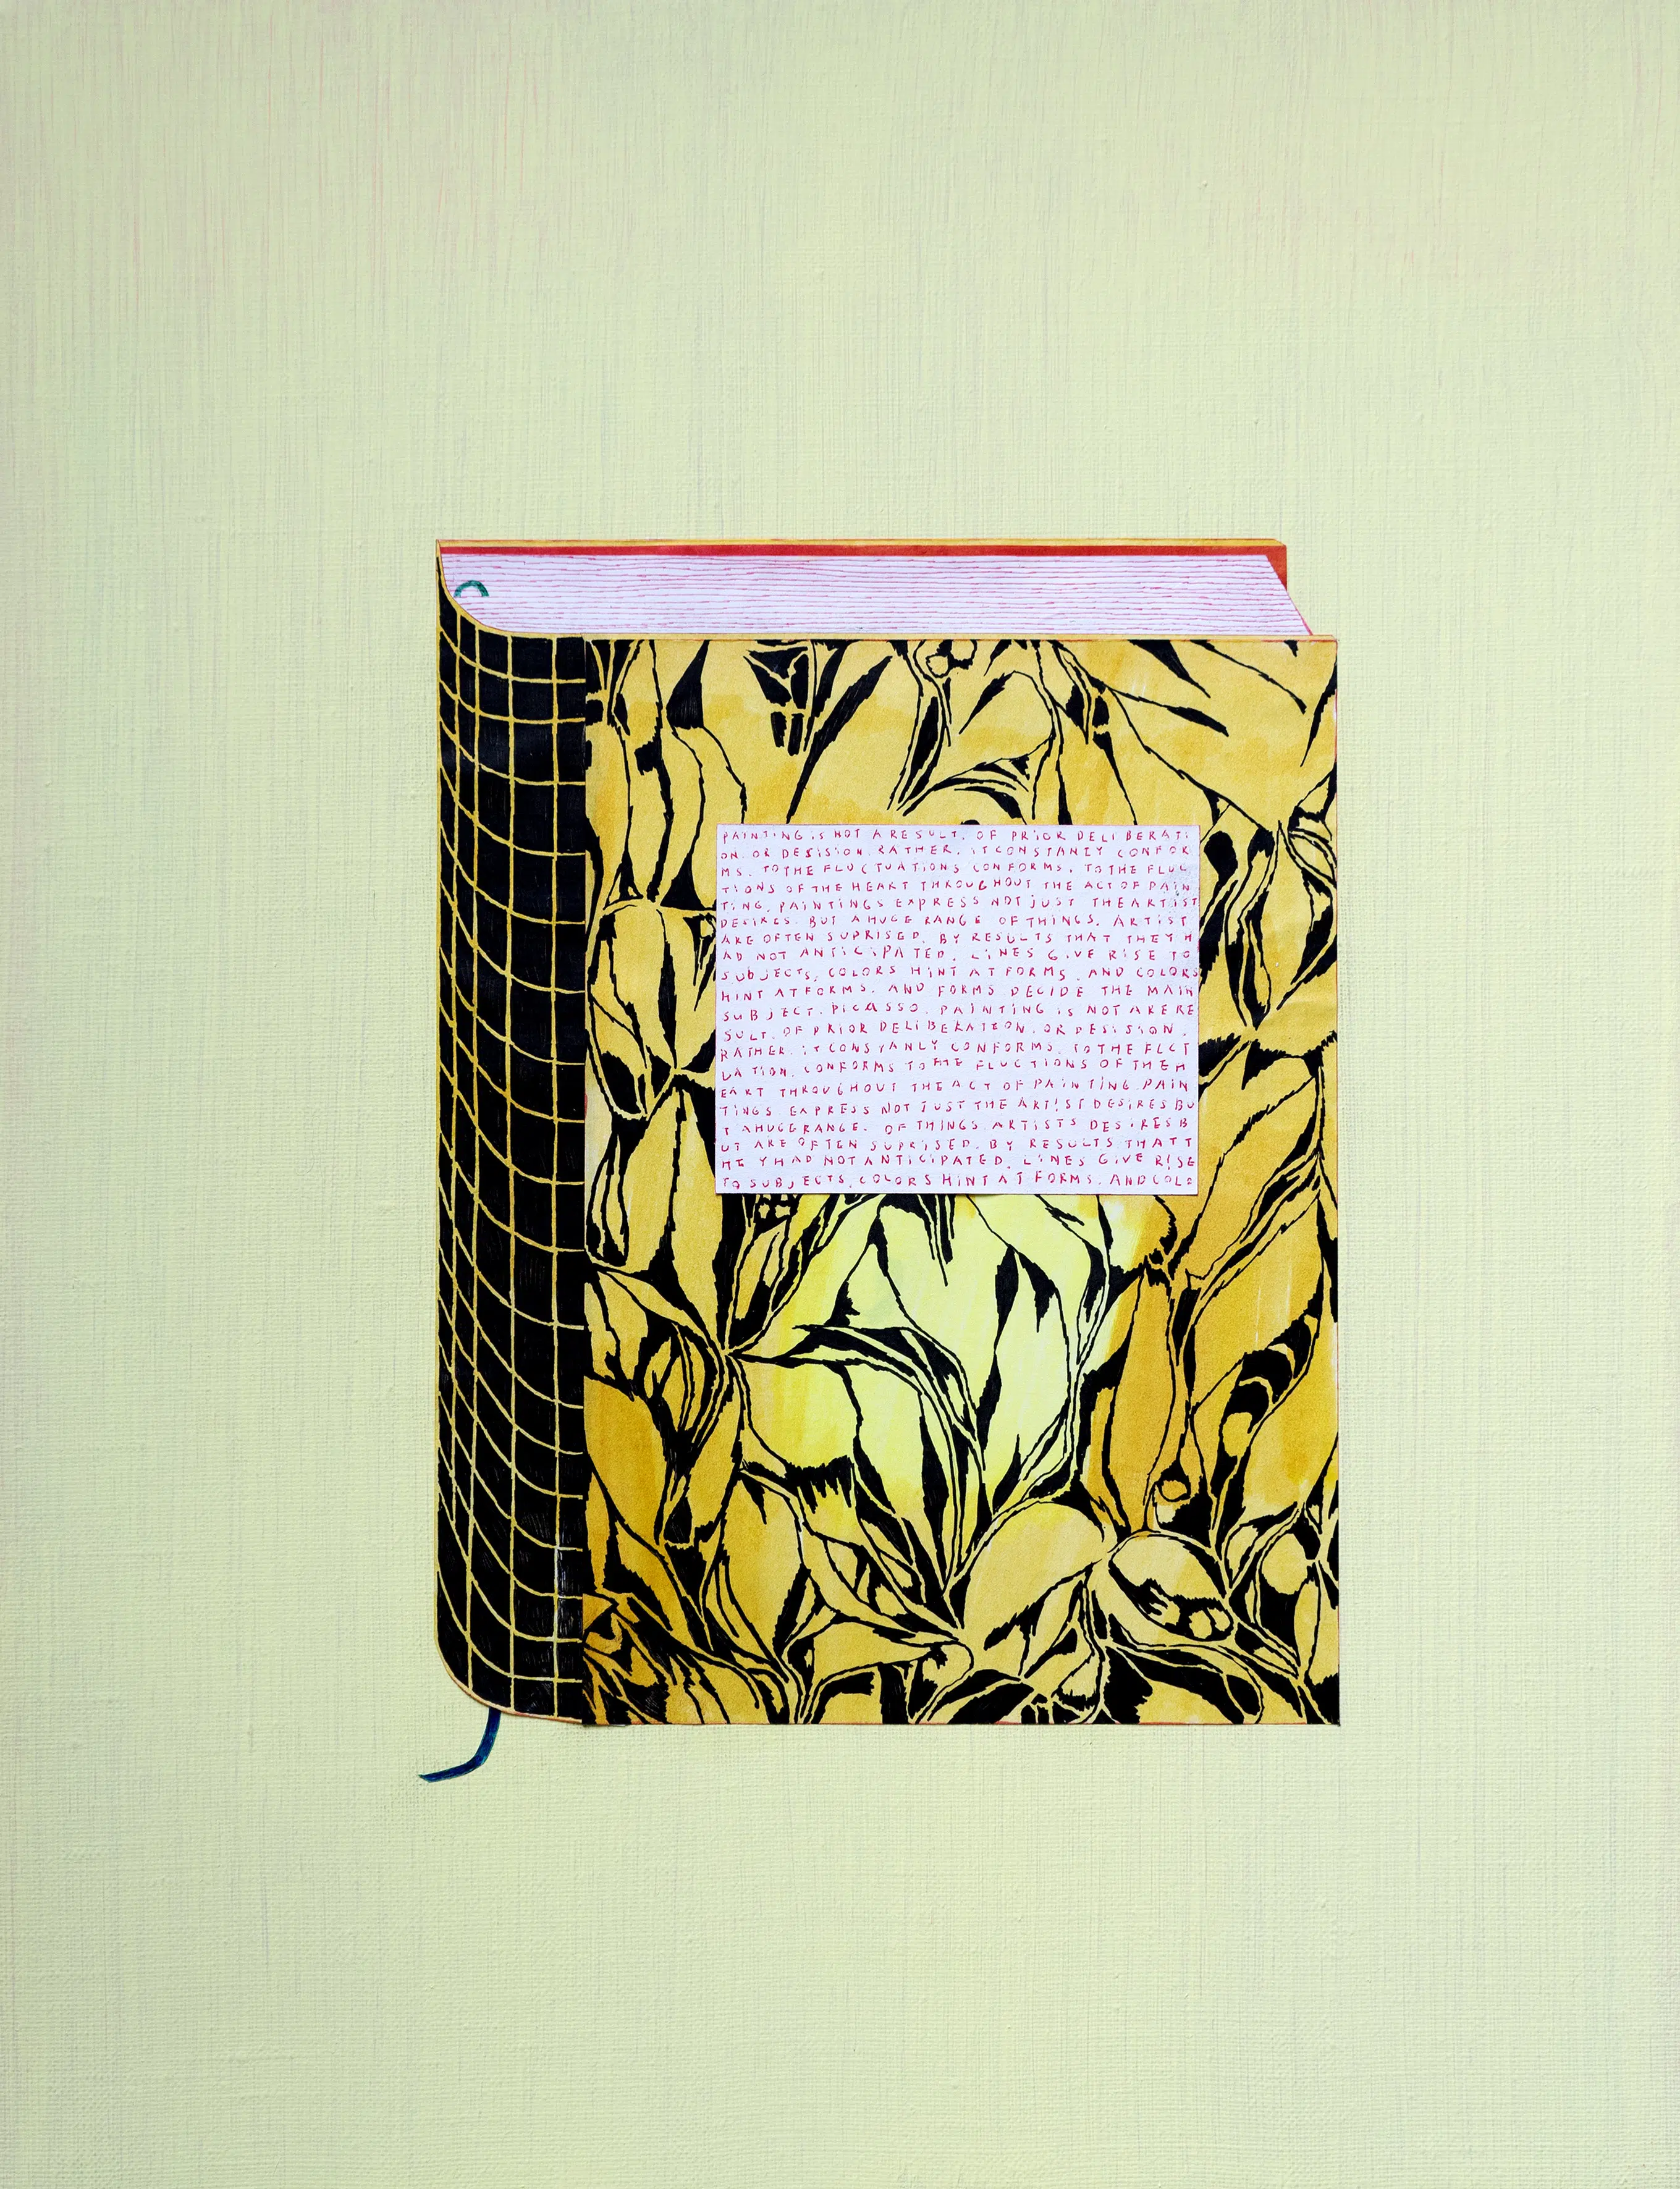 PAINTING IS NOT A RESULT. OF PRIOR DELIBERATI
ON. OR DESISION. RATHER. IT CONSTANLY CONFOR
MS. TO THE FLUCTUATIONS CONFORMS. TO THE FLUC
TIONS OF THE HEART THROUGHOUT THE ACT OF PAIN
TING. PAINTINGS EXPRESS NOT JUST THE ARTIST
DESIRES. BUT A HUGE RANGE OF THINGS. ARTIST
ARE OFTEN SUPRISED. BY RESULTS THAT THEY H
AD NOT ANTICIPATED. LINES GIVE RISE TO
SUBJECTS. COLORS HINT AT FORMS. AND COLORS
HINT AT FORMS. AND FORMS DECIDE THE MAIN
SUBJECT. PICASSO. PAINTING IS NOT A RERE
SULT. OF PRIOR DELIBERATION. OR DESISION.
RATHER. IT CONSTANLY CONFORMS. TO THE FLCT
UATION. CONFORMS TO THE FLUCTIONS OF THE H
EART THROUGHOUT THE ACT OF PAINTING. PAIN
TINGS EXPRESS NOT JUST THE ARTIST DESIRES BU
T A HUGE RANGE. OF THINGS. ARTISTS DESIRES B
UT ARE OFTEN SUPRISED. BY RESULTS THAT T
HEY HAD NOT ANTICIPATED. LINES GIVE RISE
TO SUBJECTS. COLORS HINT AT FORMS. AND COLO